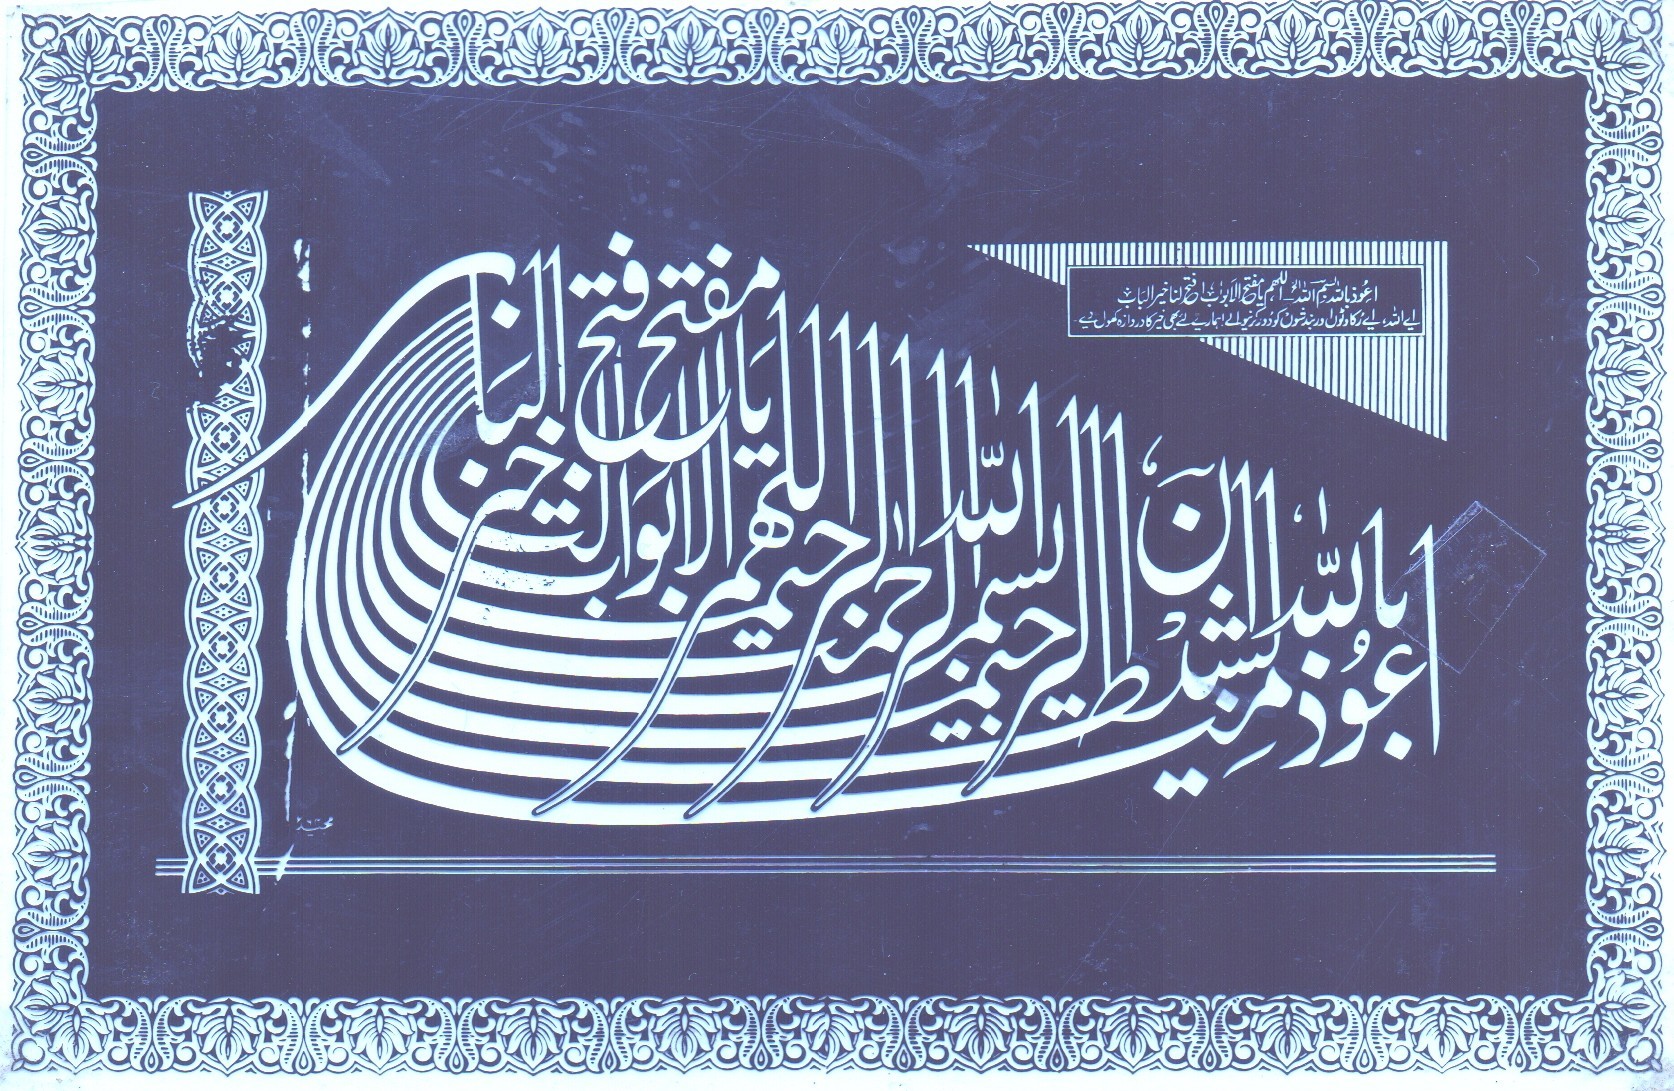 اعوذ باللہ۔ بسم اللہ۔ اللھم یا مفتح الابواب افتح لنا خیر الباب
اے اللہ، اے رکاوٹوں اور بندشوں کو دور کرنیوالے! ہمارے لئے بھی خیر کا دروازہ کھول دے۔
اعوذ باللہ من الشیطن الرجیم
بسم اللہ الرحمن الرحیم
اللھم یا مفتح الابواب افتح لنا خیر الباب